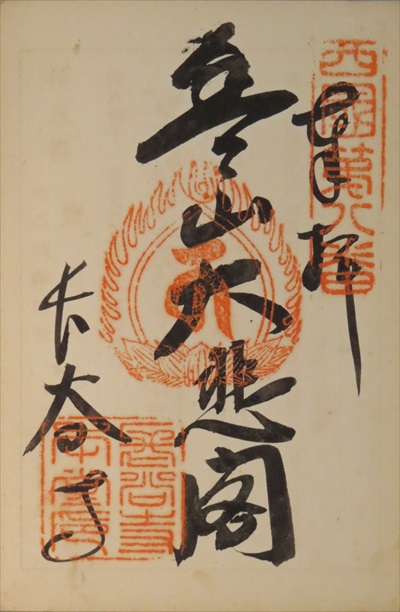 西國第八番
奉拝
豊山大悲閣
長谷寺